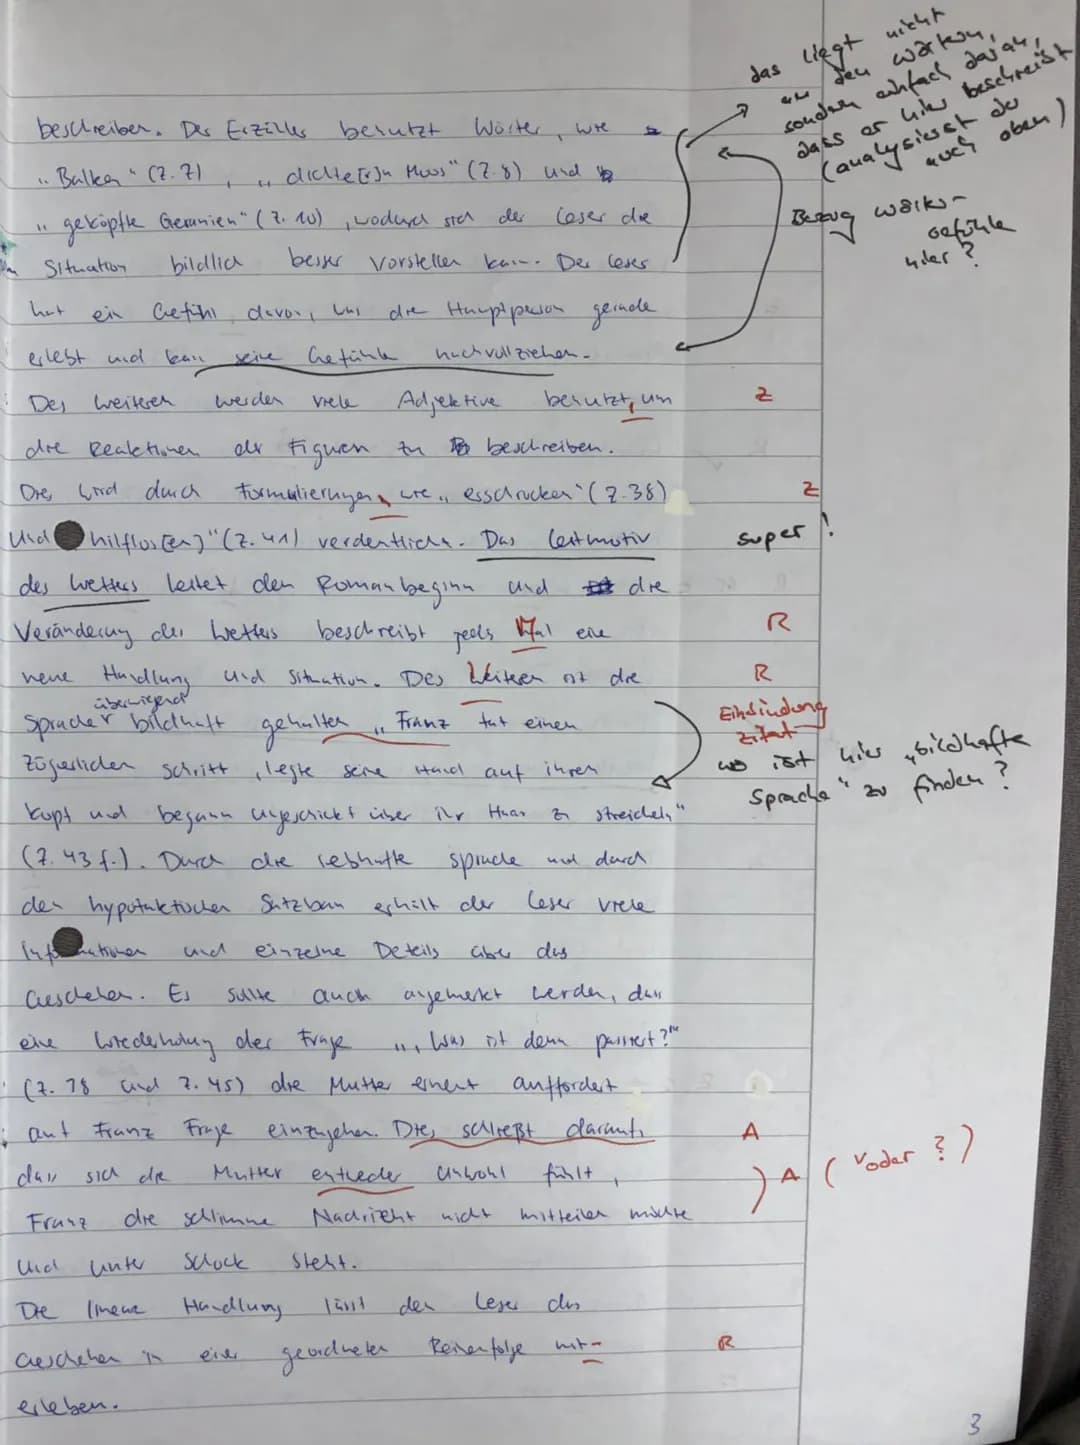 das liegt nicht
an den Wörtern,
sondern einfach daran,
dass er hier beschreibt
(analysierst du
auch oben)
beschreiben. Der Erzähler benutzt Wörter, wie
"Balken" (Z. 7), "dichte[s]n Moos" (Z. 8) und
"geköpfte Geranien" (Z. 10), wodurch sich der Leser die
Situation bildlich besser vorstellen kann. Der Leser
Bezug Wörter-
Gefühle
hier?
hat ein Gefühl davon, was die Hauptperson gerade
erlebt und kann seine Gefühle nachvollziehen.
Des weiteren werden viele Adjektive benutzt, um
Z
die Reaktionen der Figuren zu beschreiben.
Dies wird durch Formulierungen, wie "erschrocken" (Z. 38)
Z
und hilflos[en]" (Z. 41) verdeutlicht. Das Leitmotiv
super!
des Wetters leitet den Romanbeginn und die
Veränderung des Wetters beschreibt jedes Mal eine
R
neue Handlung und Situation. Des Weiteren ist die
R
überwiegend
Sprache bildhaft gehalten "Franz tat einen
Einbindung
Zitat
zögerlichen Schritt, legte seine Hand auf ihren
wo ist hier "bildhafte
Sprache" zu finden?
Kopf und begann ungeschickt über ihr Haar zu streicheln"
(Z. 43 f.). Durch die lebhafte Sprache und durch
den hypotaktischen Satzbau erhält der Leser viele
Informationen und einzelne Details über das
Geschehen. Es sollte auch angemerkt werden, dass
eine Wiederholung der Frage "'Was ist denn passiert?'"
(Z. 78 und Z. 45) die Mutter erneut auffordert
auf Franz Frage einzugehen. Dies schließt darauf,
A
dass sich die Mutter entweder unwohl fühlt,
A (Voder?)
Franz die schlimme Nachricht nicht mitteilen möchte
und unter Schock steht.
Die lineare Handlung lässt den Leser das
Geschehen in einer geordneten Reihenfolge mit-
R
erleben.
3